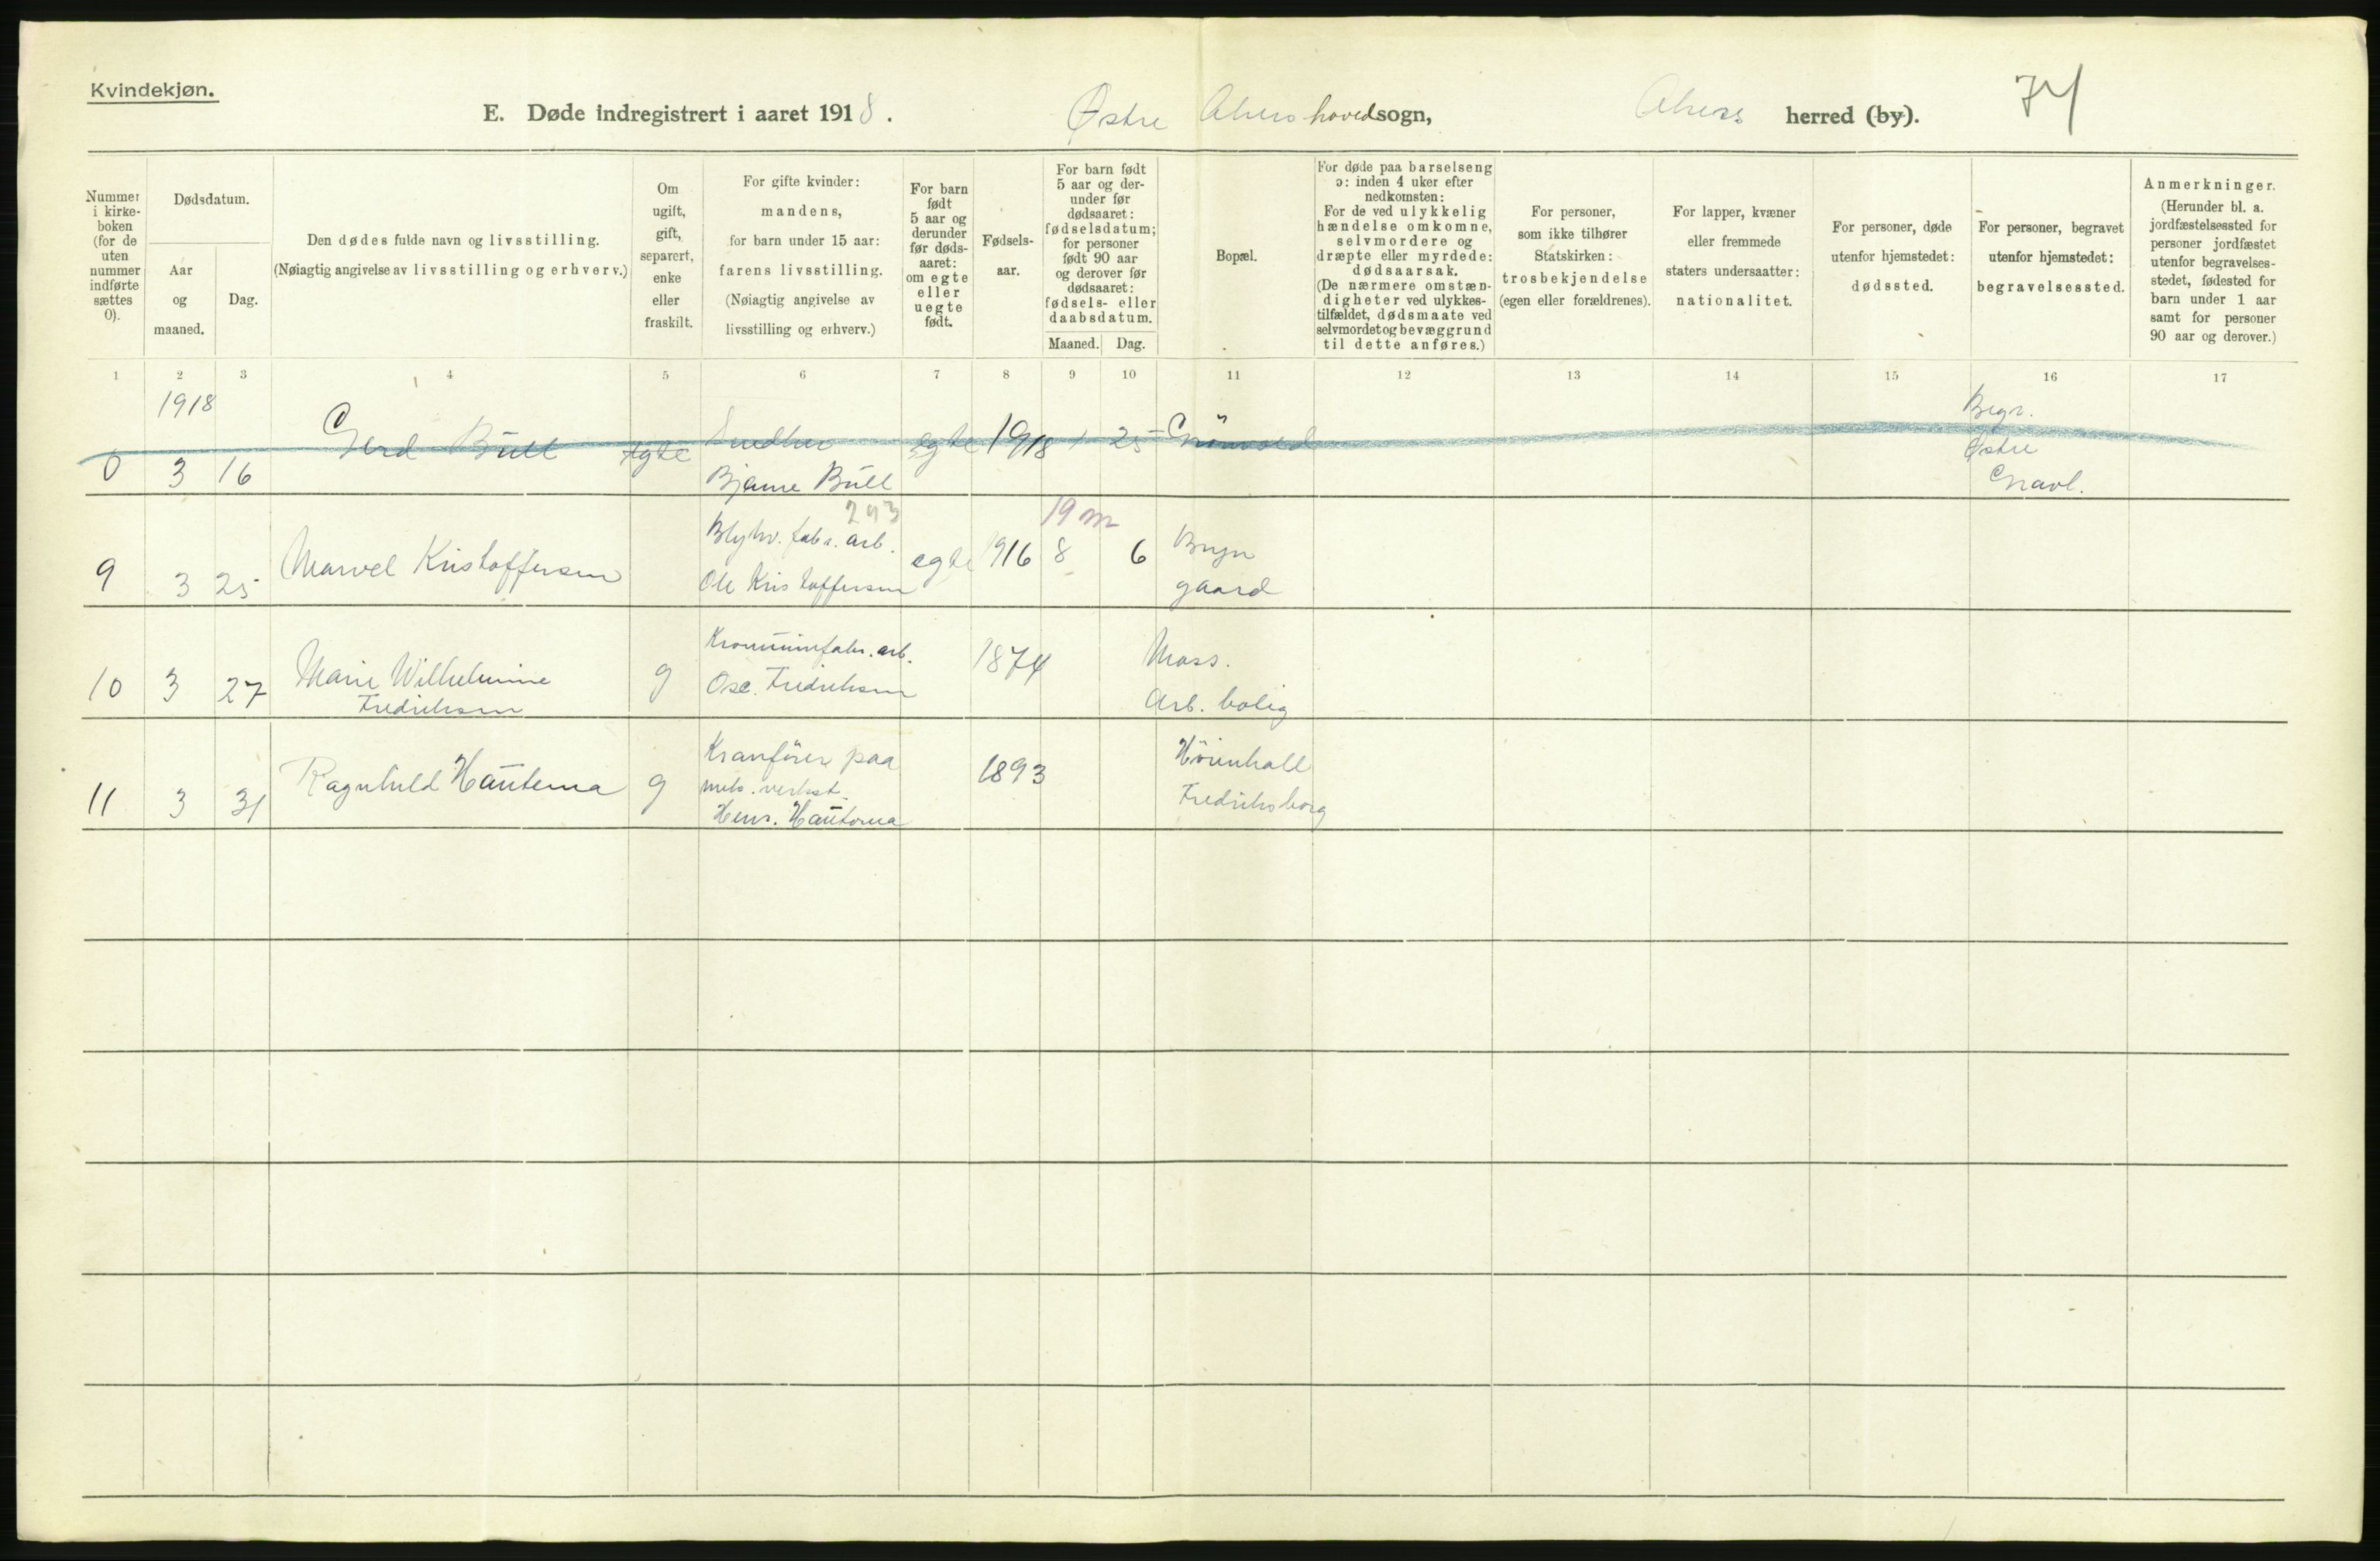 Kvindekjøn.
E. Døde indregistrert i aaret 1918.
Østre Akers hovedsogn,
Akers herred (by).
74
Nummer i kirke-
boken
(for de
uten
nummer
indførte
sættes
0).
Dødsdatum.
Aar
og
maaned.
Dag.
Den dødes fulde navn og livsstilling.
(Nøiagtig angivelse av livsstilling og erhverv.)
Om
ugift,
gift,
separert,
enke
eller
fraskilt.
For gifte kvinder:
mandens,
for barn under 15 aar:
farens livsstilling.
(Nøiagtig angivelse av
livsstilling og erhverv.)
For barn
født
5 aar og
derunder
før døds-
aaret:
om egte
eller
uegte
født.
Fødsels-
aar.
For barn født
5 aar og der-
under før
dødsaaret:
fødselsdatum;
for personer
født 90 aar
og derover før
dødsaaret:
fødsels- eller
daabsdatum.
Maaned. Dag.
Bopæl.
For døde paa barselseng
ɔ: inden 4 uker efter
nedkomsten:
For de ved ulykkelig
hændelse omkomne,
selvmordere og
dræpte eller myrdede:
dødsaarsak.
(De nærmere omstæn-
digheter ved ulykkes-
tilfældet, dødsmaate ved
selvmordet og bevæggrund
til dette anføres.)
For personer,
som ikke tilhører
Statskirken:
trosbekjendelse
(egen eller forældrenes).
For lapper, kvæner
eller fremmede
staters undersaatter:
nationalitet.
For personer, døde
utenfor hjemstedet:
dødssted.
For personer, begravet
utenfor hjemstedet:
begravelsessted.
Anmerkninger.
(Herunder bl. a.
jordfæstelsessted for
personer jordfæstet
utenfor begravelses-
stedet, fødested for
barn under 1 aar
samt for personer
90 aar og derover.)
1 2 3 4 5 6 7 8 9 10 11 12 13 14 15 16 17
1918
0 3 16 Gerd Büll egte Snedker egte 1918 1 25 Grönvold Begr.
Bjarne Büll Østre
Gravl.
293 19 m
9 3 25 Marvel Kristoffersen Blyhv. fabr. arb. egte 1916 8 6 Bryn
Ole Kristoffersen gaard
10 3 27 Marie Wilhelmine g 1874 Moss.
Fredriksen Osc. Fredriksen Arb. bolig
11 3 31 Ragnhild Hautema g Kranförer paa 1893
mek. verkst. Fredriksborg
Henr. Hautoma